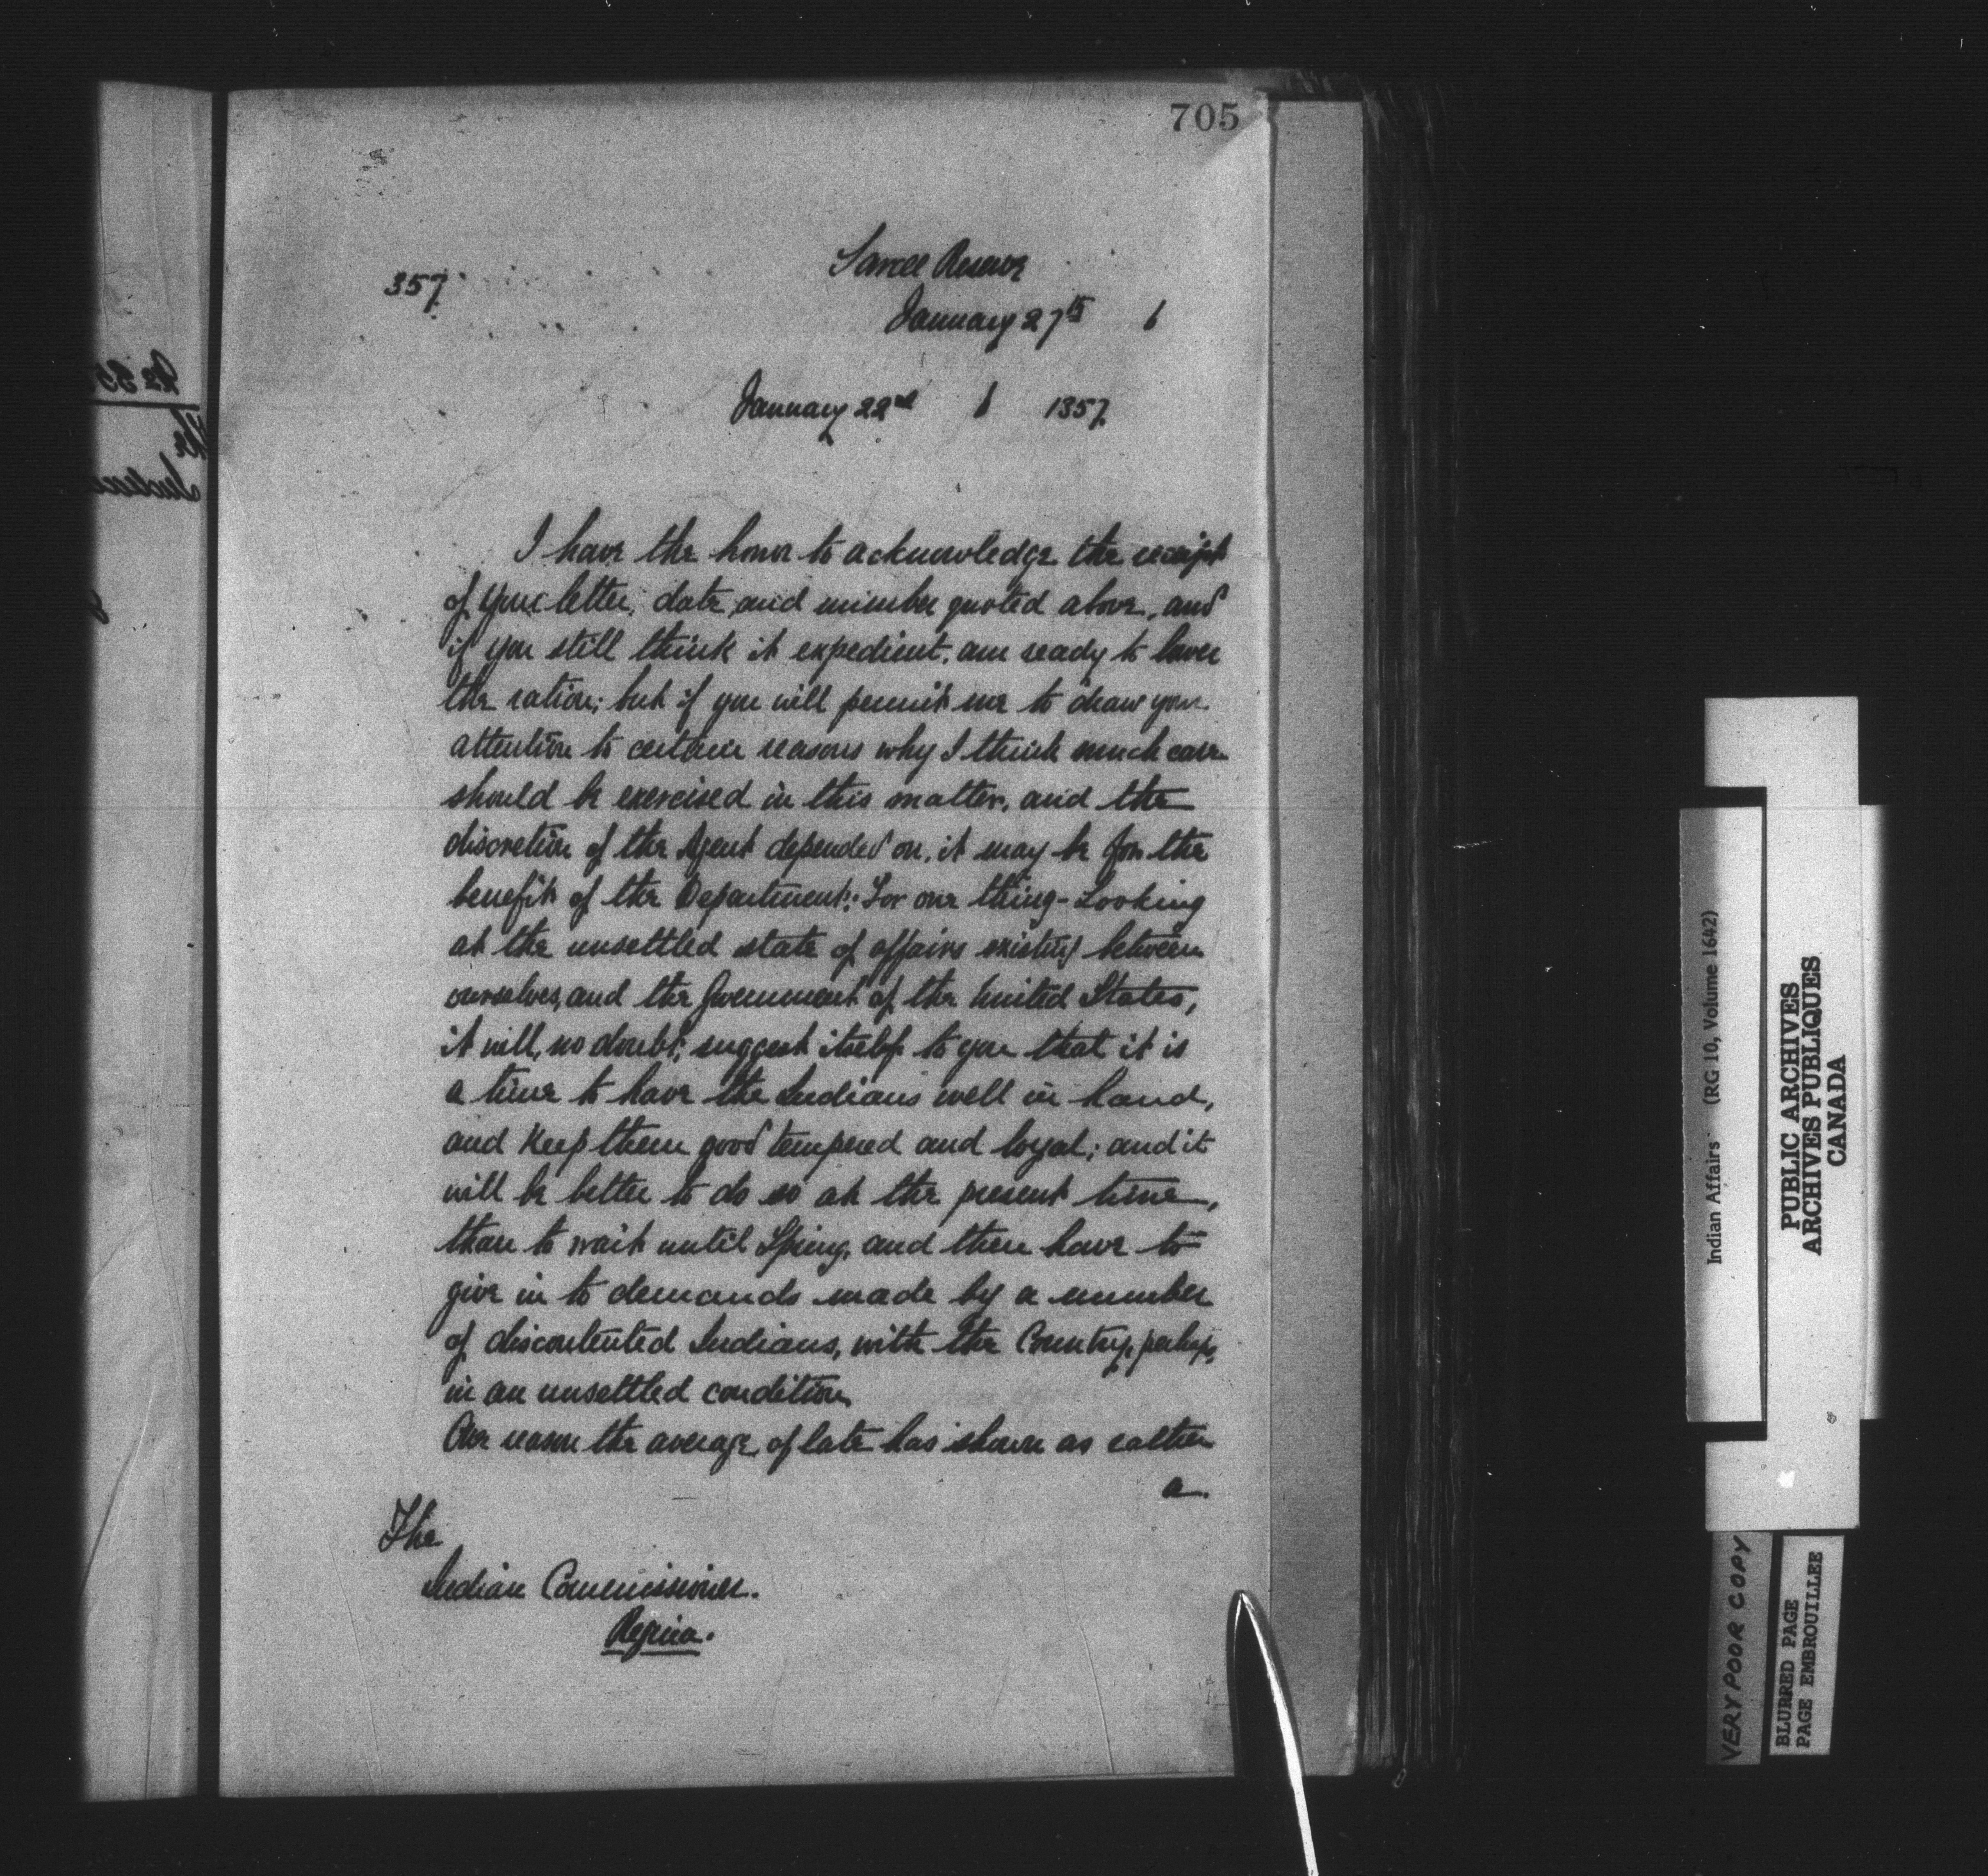 705
Sarcee Reserve
357.
January 27th 6
January 22nd 6 1357.
I have the honor to acknowledge the receipt
of your letter, date and number quoted above, and
if you still think it expedient, am ready to lower
the ration; but if you will permit me to draw your
attention to certain reasons why I think much care
should be exercised in this matter, and the
discretion of the Agent depended on, it may be for the
benefit of the Department: For one thing - Looking
at the unsettled state of affairs existing between
ourselves, and the Government of the United States,
it will, no doubt, suggest itself to you that it is
a time to have the Indians well in hand,
and keep them good tempered and loyal; and it
will be better to do so at the present time,
than to wait until Spring, and then have to
give in to demands made by a number
of discontented Indians, with the Country, perhaps,
in an unsettled condition
One reason the average of late has shown as rather
a.
The
Indian Commissioner.
Regina.
Indian Affairs (RG 10, Volume 1642)
PUBLIC ARCHIVES
ARCHIVES PUBLIQUES
CANADA
VERY POOR COPY
BLURRED PAGE
PAGE EMBROUILLEE